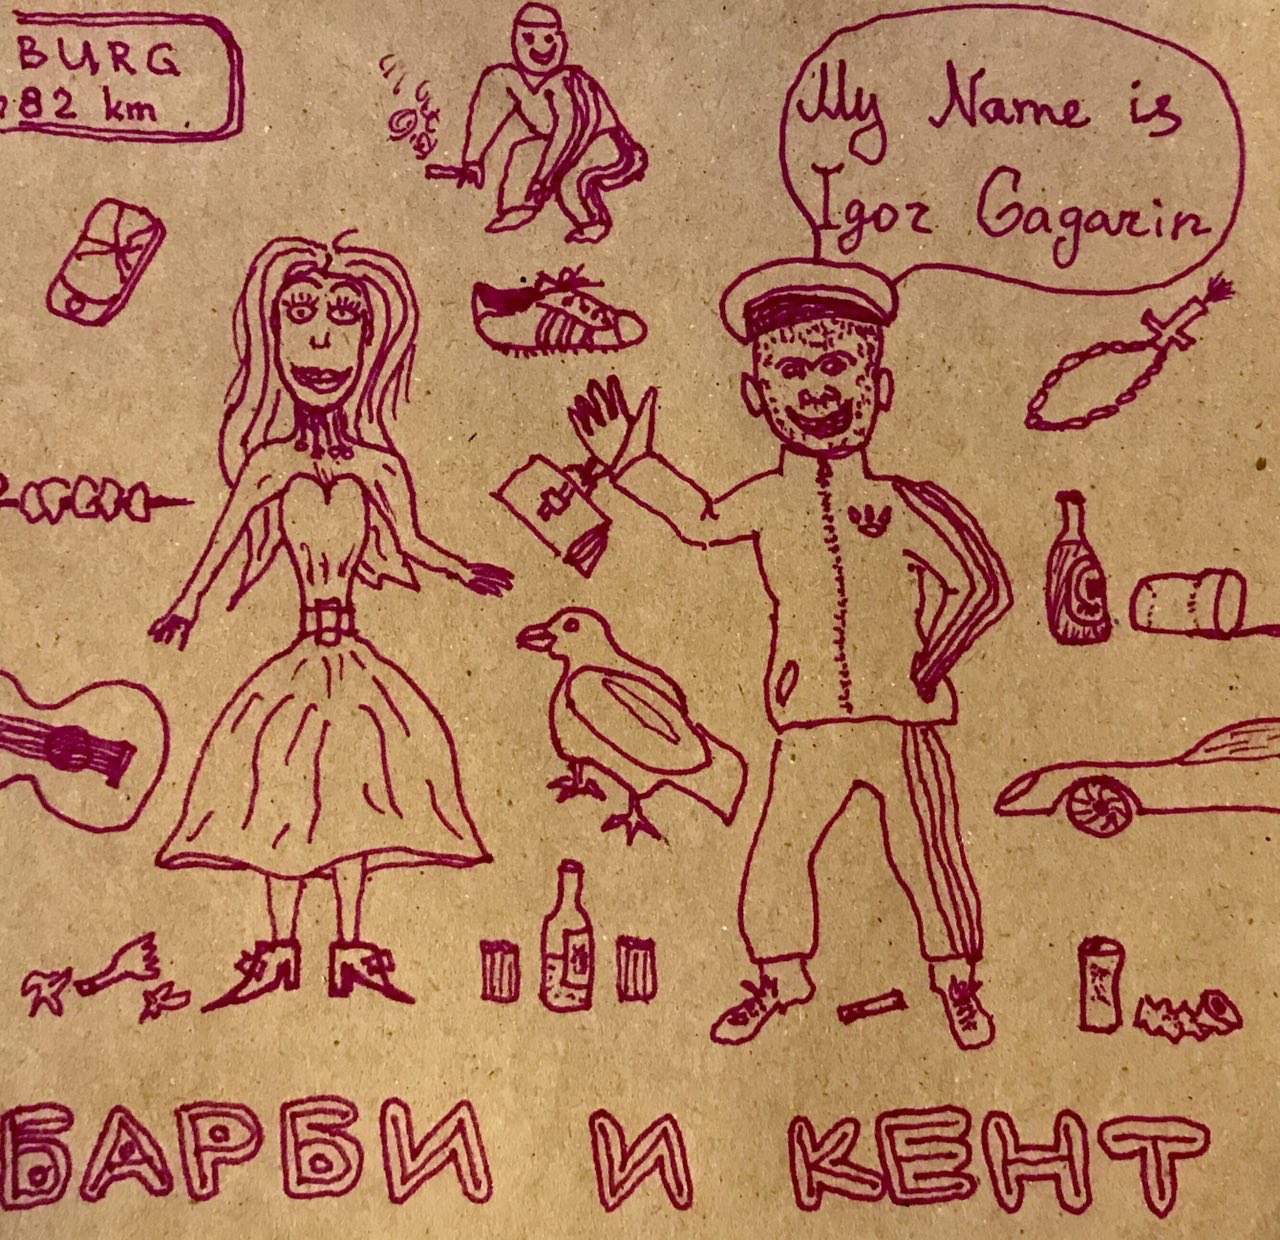 BURG
82 km
My Name is
Igor Gagarin
БАРБИ И КЕНТ